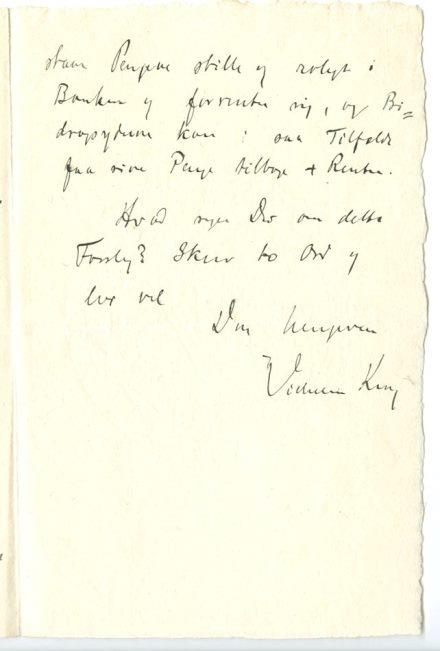 staar Pengene stille og roligt i
Banken og forrenter sig, og Bi=
dragyderne kan i saa Tilfælde
faa sine Penge tilbage + Renter.
Hvad siger De om dette
Forslag? Skriv to Ord og
lev vel
Din hengivne
Vilhelm Krag